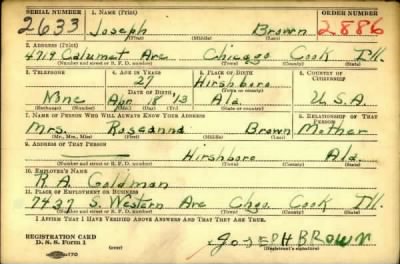 SERIAL NUMBER 1. NAME (Print) ORDER NUMBER
2633 Joseph Brown 2886
(First) (Middle) (Last)
2. ADDRESS (Print)
4719 Calumet Ave Chicago Cook Ill.
(Number and street or R. F. D. number) (Town) (County) (State)
3. TELEPHONE 4. AGE IN YEARS 5. PLACE OF BIRTH 6. COUNTRY OF CITIZENSHIP
27 Hirshboro
DATE OF BIRTH (Town or county)
None Apr 8 '13 Ala U.S.A.
(Exchange) (Number) (Mo.) (Day) (Yr.) (State or country)
7. NAME OF PERSON WHO WILL ALWAYS KNOW YOUR ADDRESS 8. RELATIONSHIP OF THAT PERSON
Mrs. Roseanna Brown Mother
(Mr., Mrs., Miss) (First) (Middle) (Last)
9. ADDRESS OF THAT PERSON
— Hirshboro Ala.
(Number and street or R. F. D. number) (Town) (County) (State)
10. EMPLOYER'S NAME
R. A. Goldman
11. PLACE OF EMPLOYMENT OR BUSINESS
7437 S. Western Ave Chgo. Cook Ill.
(Number and street or R. F. D. number) (Town) (County) (State)
I AFFIRM THAT I HAVE VERIFIED ABOVE ANSWERS AND THAT THEY ARE TRUE.
REGISTRATION CARD
D. S. S. Form 1 JOSEPH BROWN
(Registrant's signature)